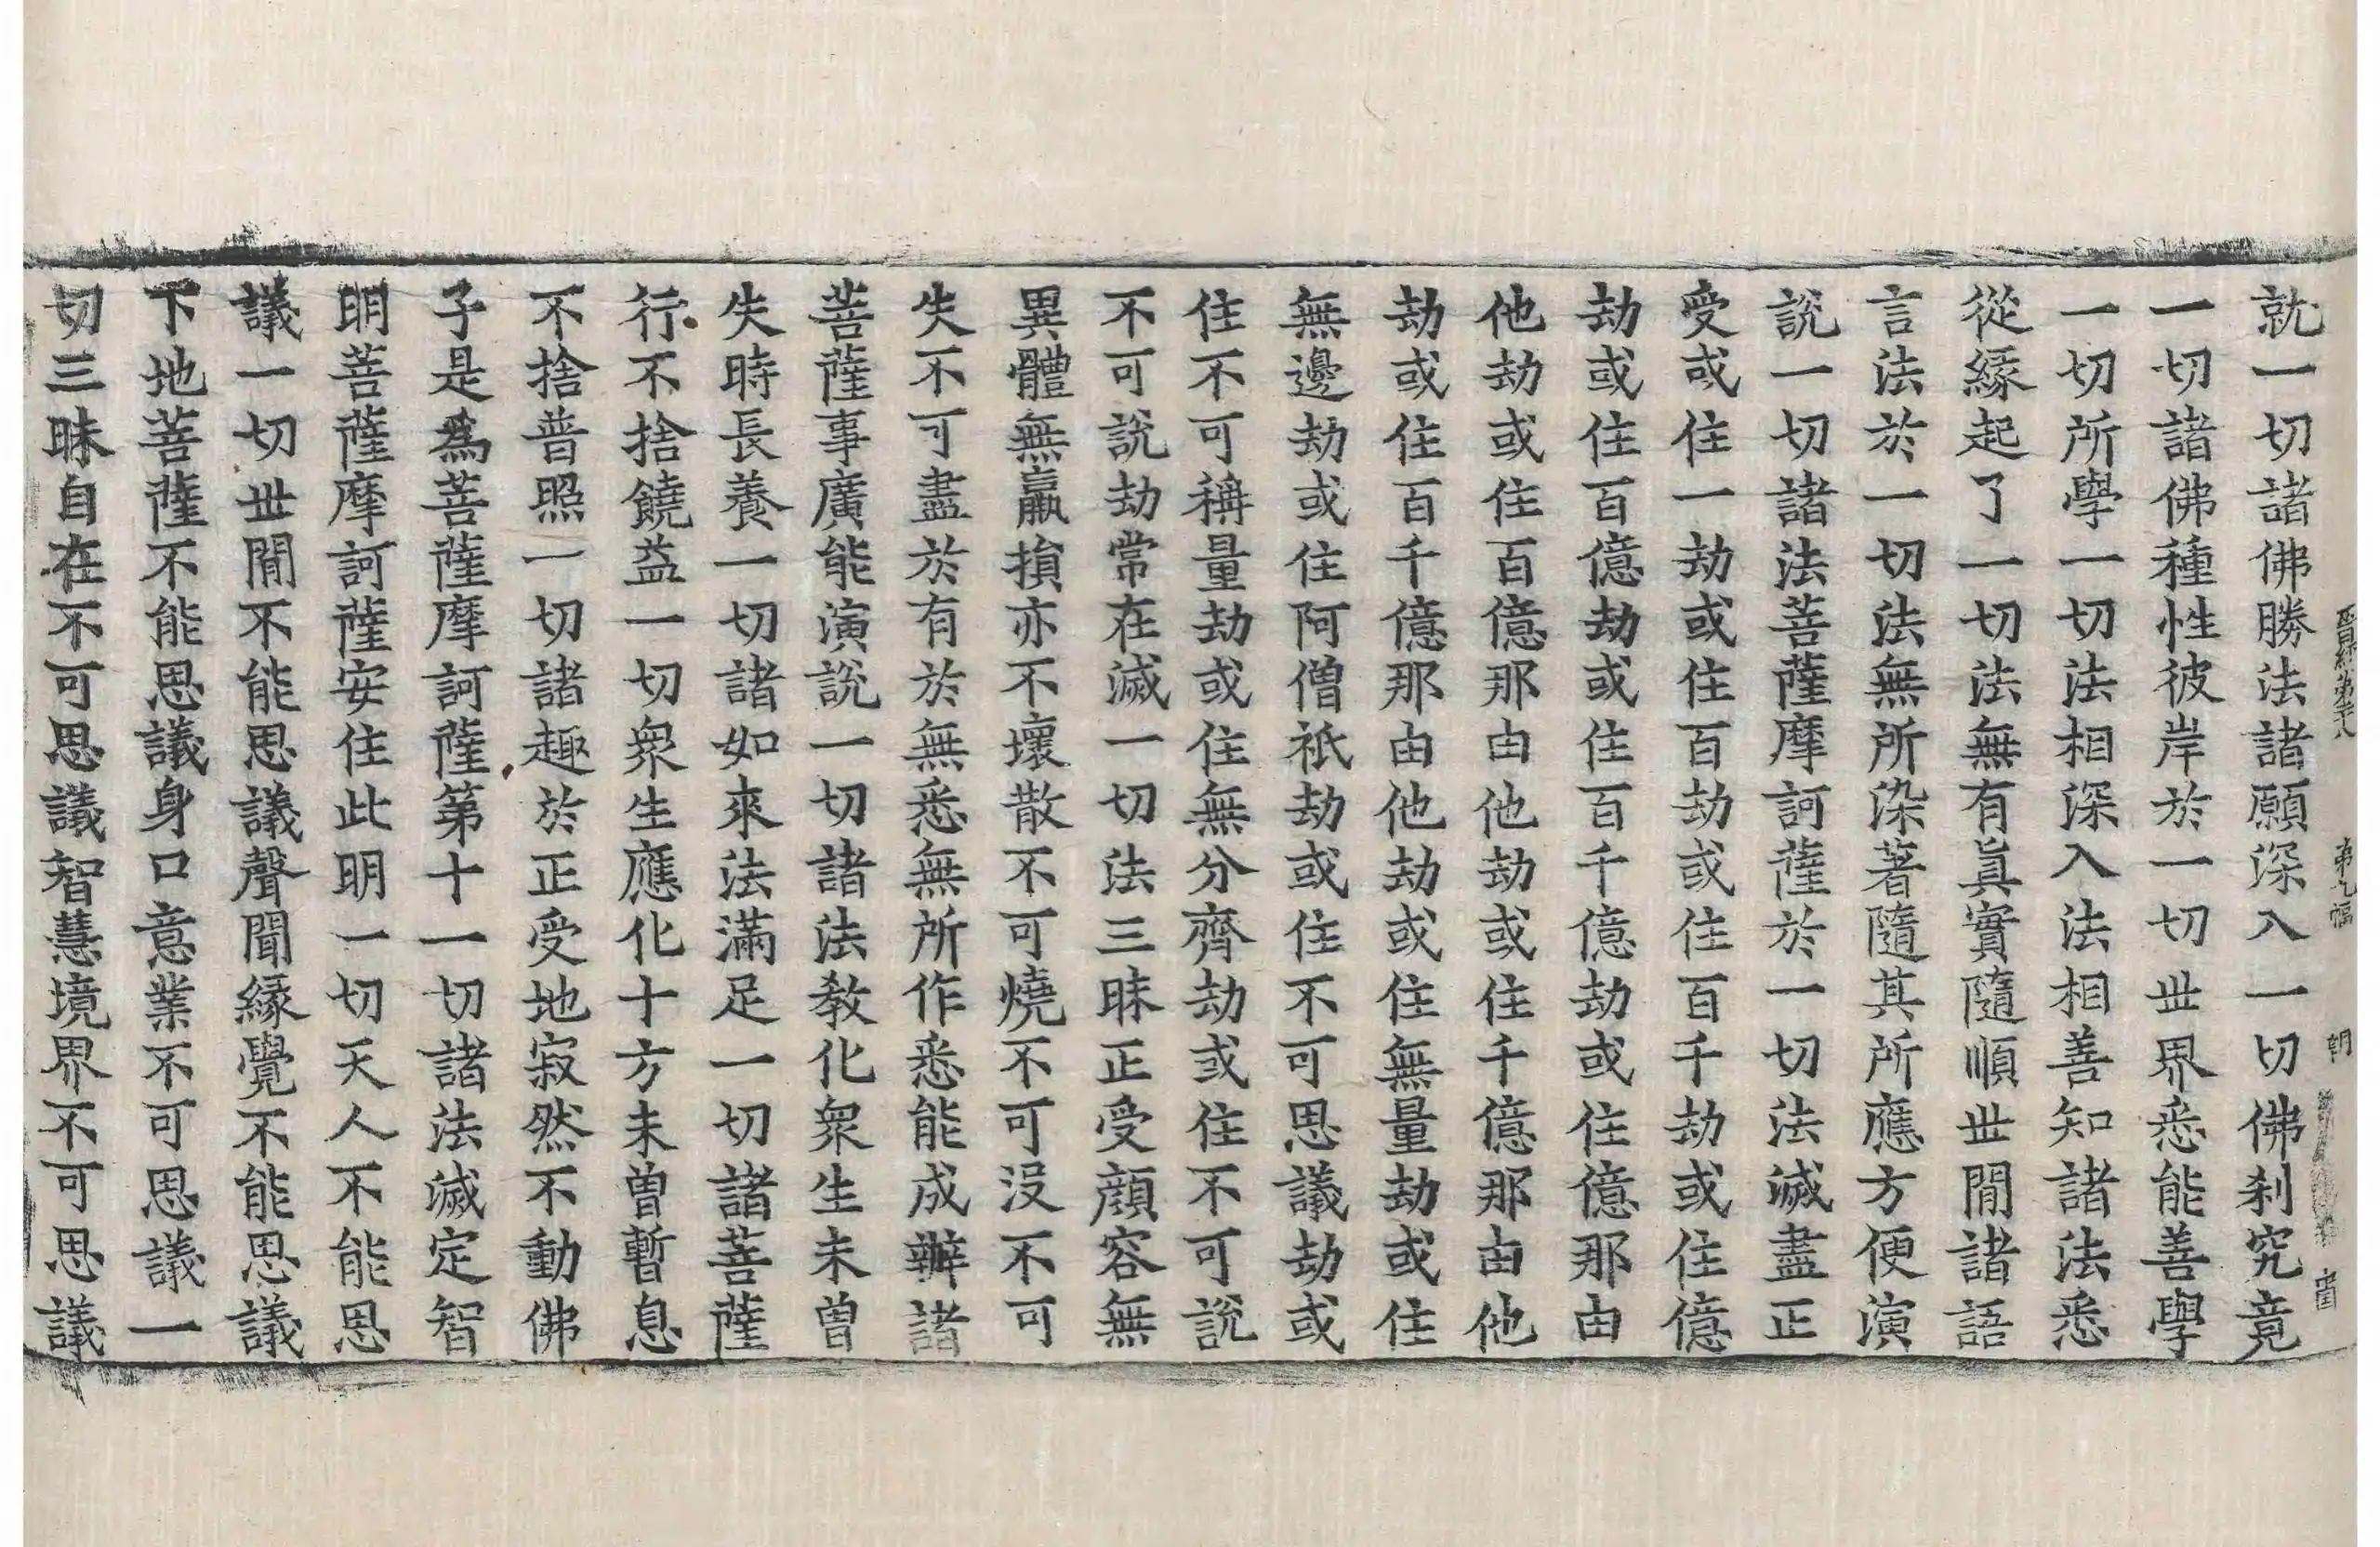 晉經第廿八 第九幅 朝
就一切諸佛勝法諸願深入一切佛刹究竟
一切諸佛種性彼岸於一切世界悉能善學
一切所學一切法相深入法相善知諸法悉
從緣起了一切法無有眞實隨順世閒諸語
言法於一切法無所染著隨其所應方便演
說一切諸法菩薩摩訶薩於一切法滅盡正
受或住一劫或住百劫或住百千劫或住億
劫或住百億劫或住百千億劫或住億那由
他劫或住百億那由他劫或住千億那由他
劫或住百千億那由他劫或住無量劫或住
無邊劫或住阿僧祇劫或住不可思議劫或
住不可稱量劫或住無分齊劫或住不可說
不可說劫常在滅一切法三昧正受顔容無
異體無羸損亦不壞散不可燒不可沒不可
失不可盡於有於無悉無所作悉能成辦諸
菩薩事廣能演說一切諸法教化衆生未曾
失時長養一切諸如來法滿足一切諸菩薩
行不捨饒益一切衆生應化十方未曾暫息
不捨普照一切諸趣於正受地寂然不動佛
子是為菩薩摩訶薩第十一切諸法滅定智
明菩薩摩訶薩安住此明一切天人不能思
議一切世閒不能思議聲聞緣覺不能思議
下地菩薩不能思議身口意業不可思議一
切三昧自在不可思議智慧境界不可思議